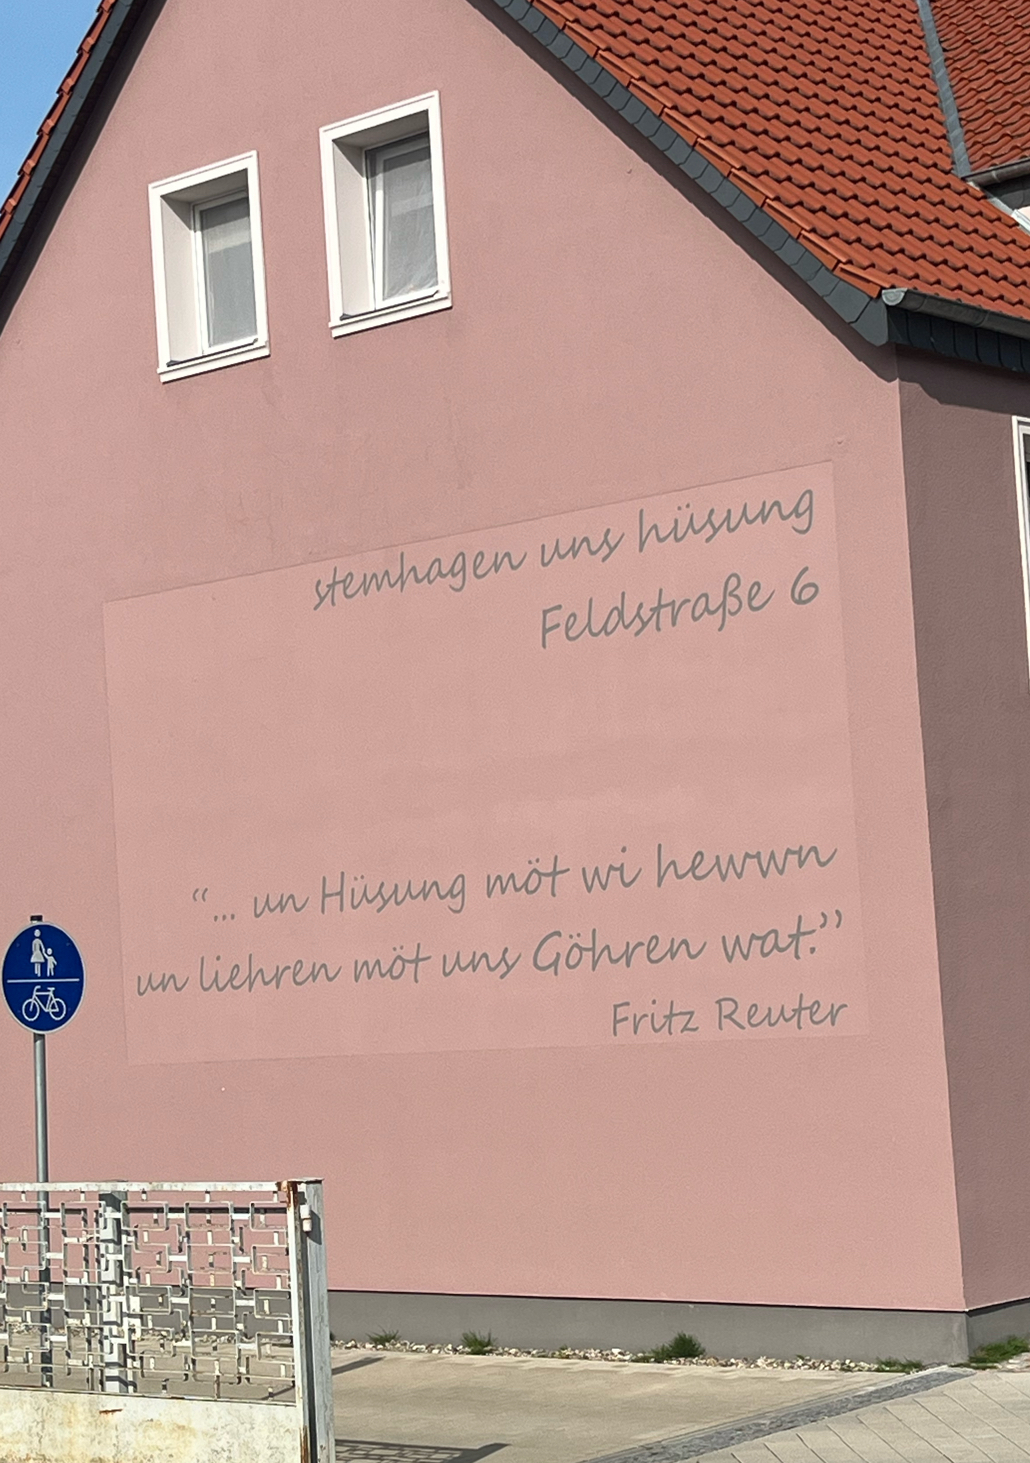 stemhagen uns hüsung
Feldstraße 6
“... un Hüsung möt wi hewwn
un liehren möt uns Göhren wat.”
Fritz Reuter